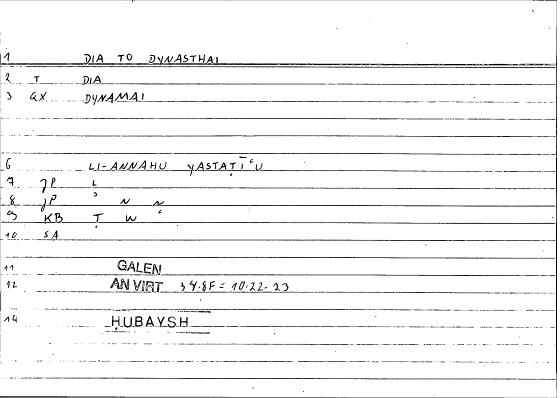 1 DIA TO DYNASTHAI
2 T DIA
3 GX DYNAMAI
6 LI-ANNAHU YASTAṬĪʿU
7 JP L
8 JP ʾ N N
9 KB Ṭ W ʿ
10 SA
11 GALEN
12 AN VIRT 34.8F = 10.22-23
14 ḤUBAYSH